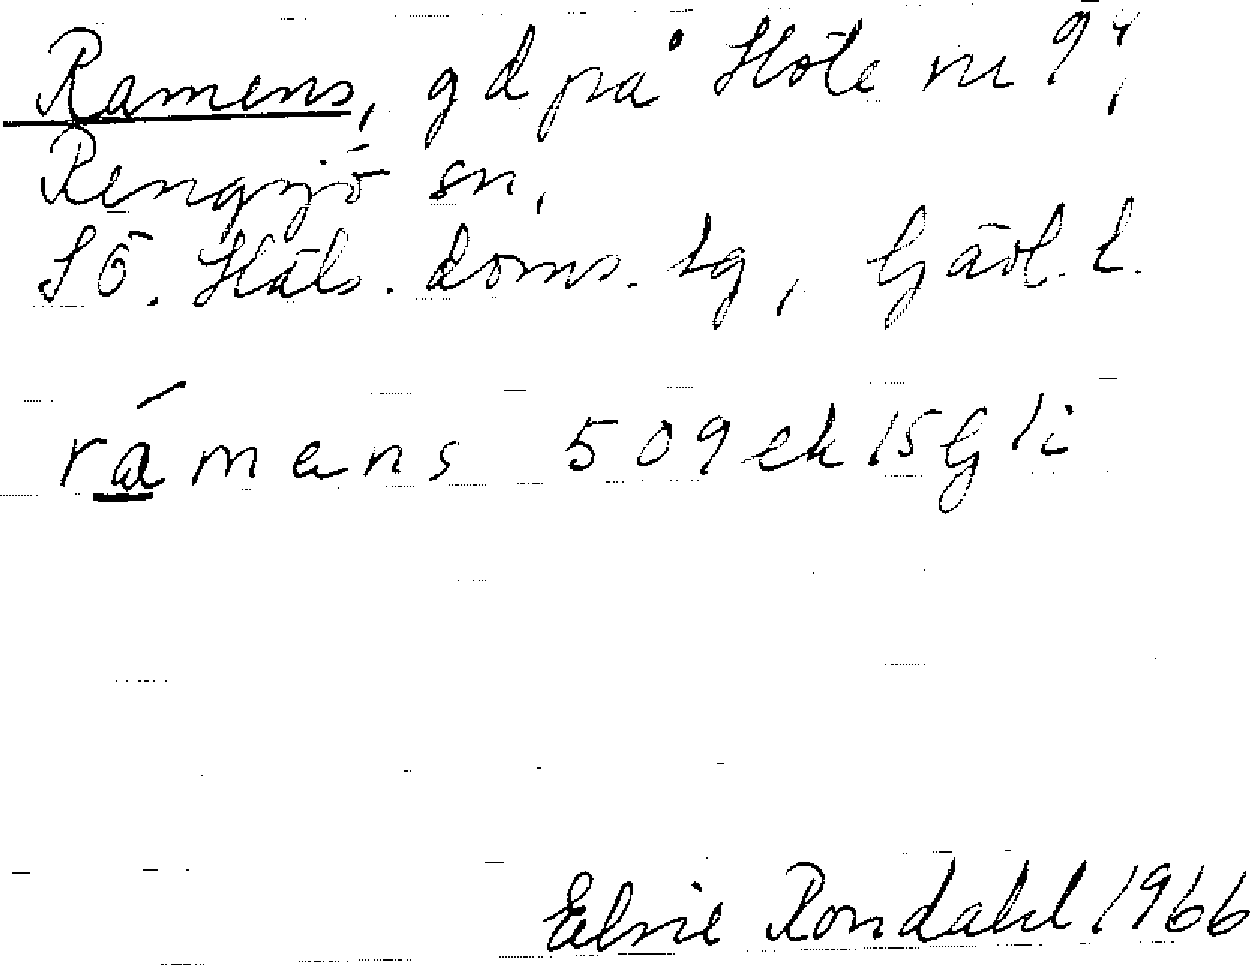 Ramens, gd på Höle nr 9⁴,
Rengsjö sn,
SÖ. Häls. doms. lg, Gävl. l.
rámens 509 ek 15 G li
Elvie Rondahl 1966